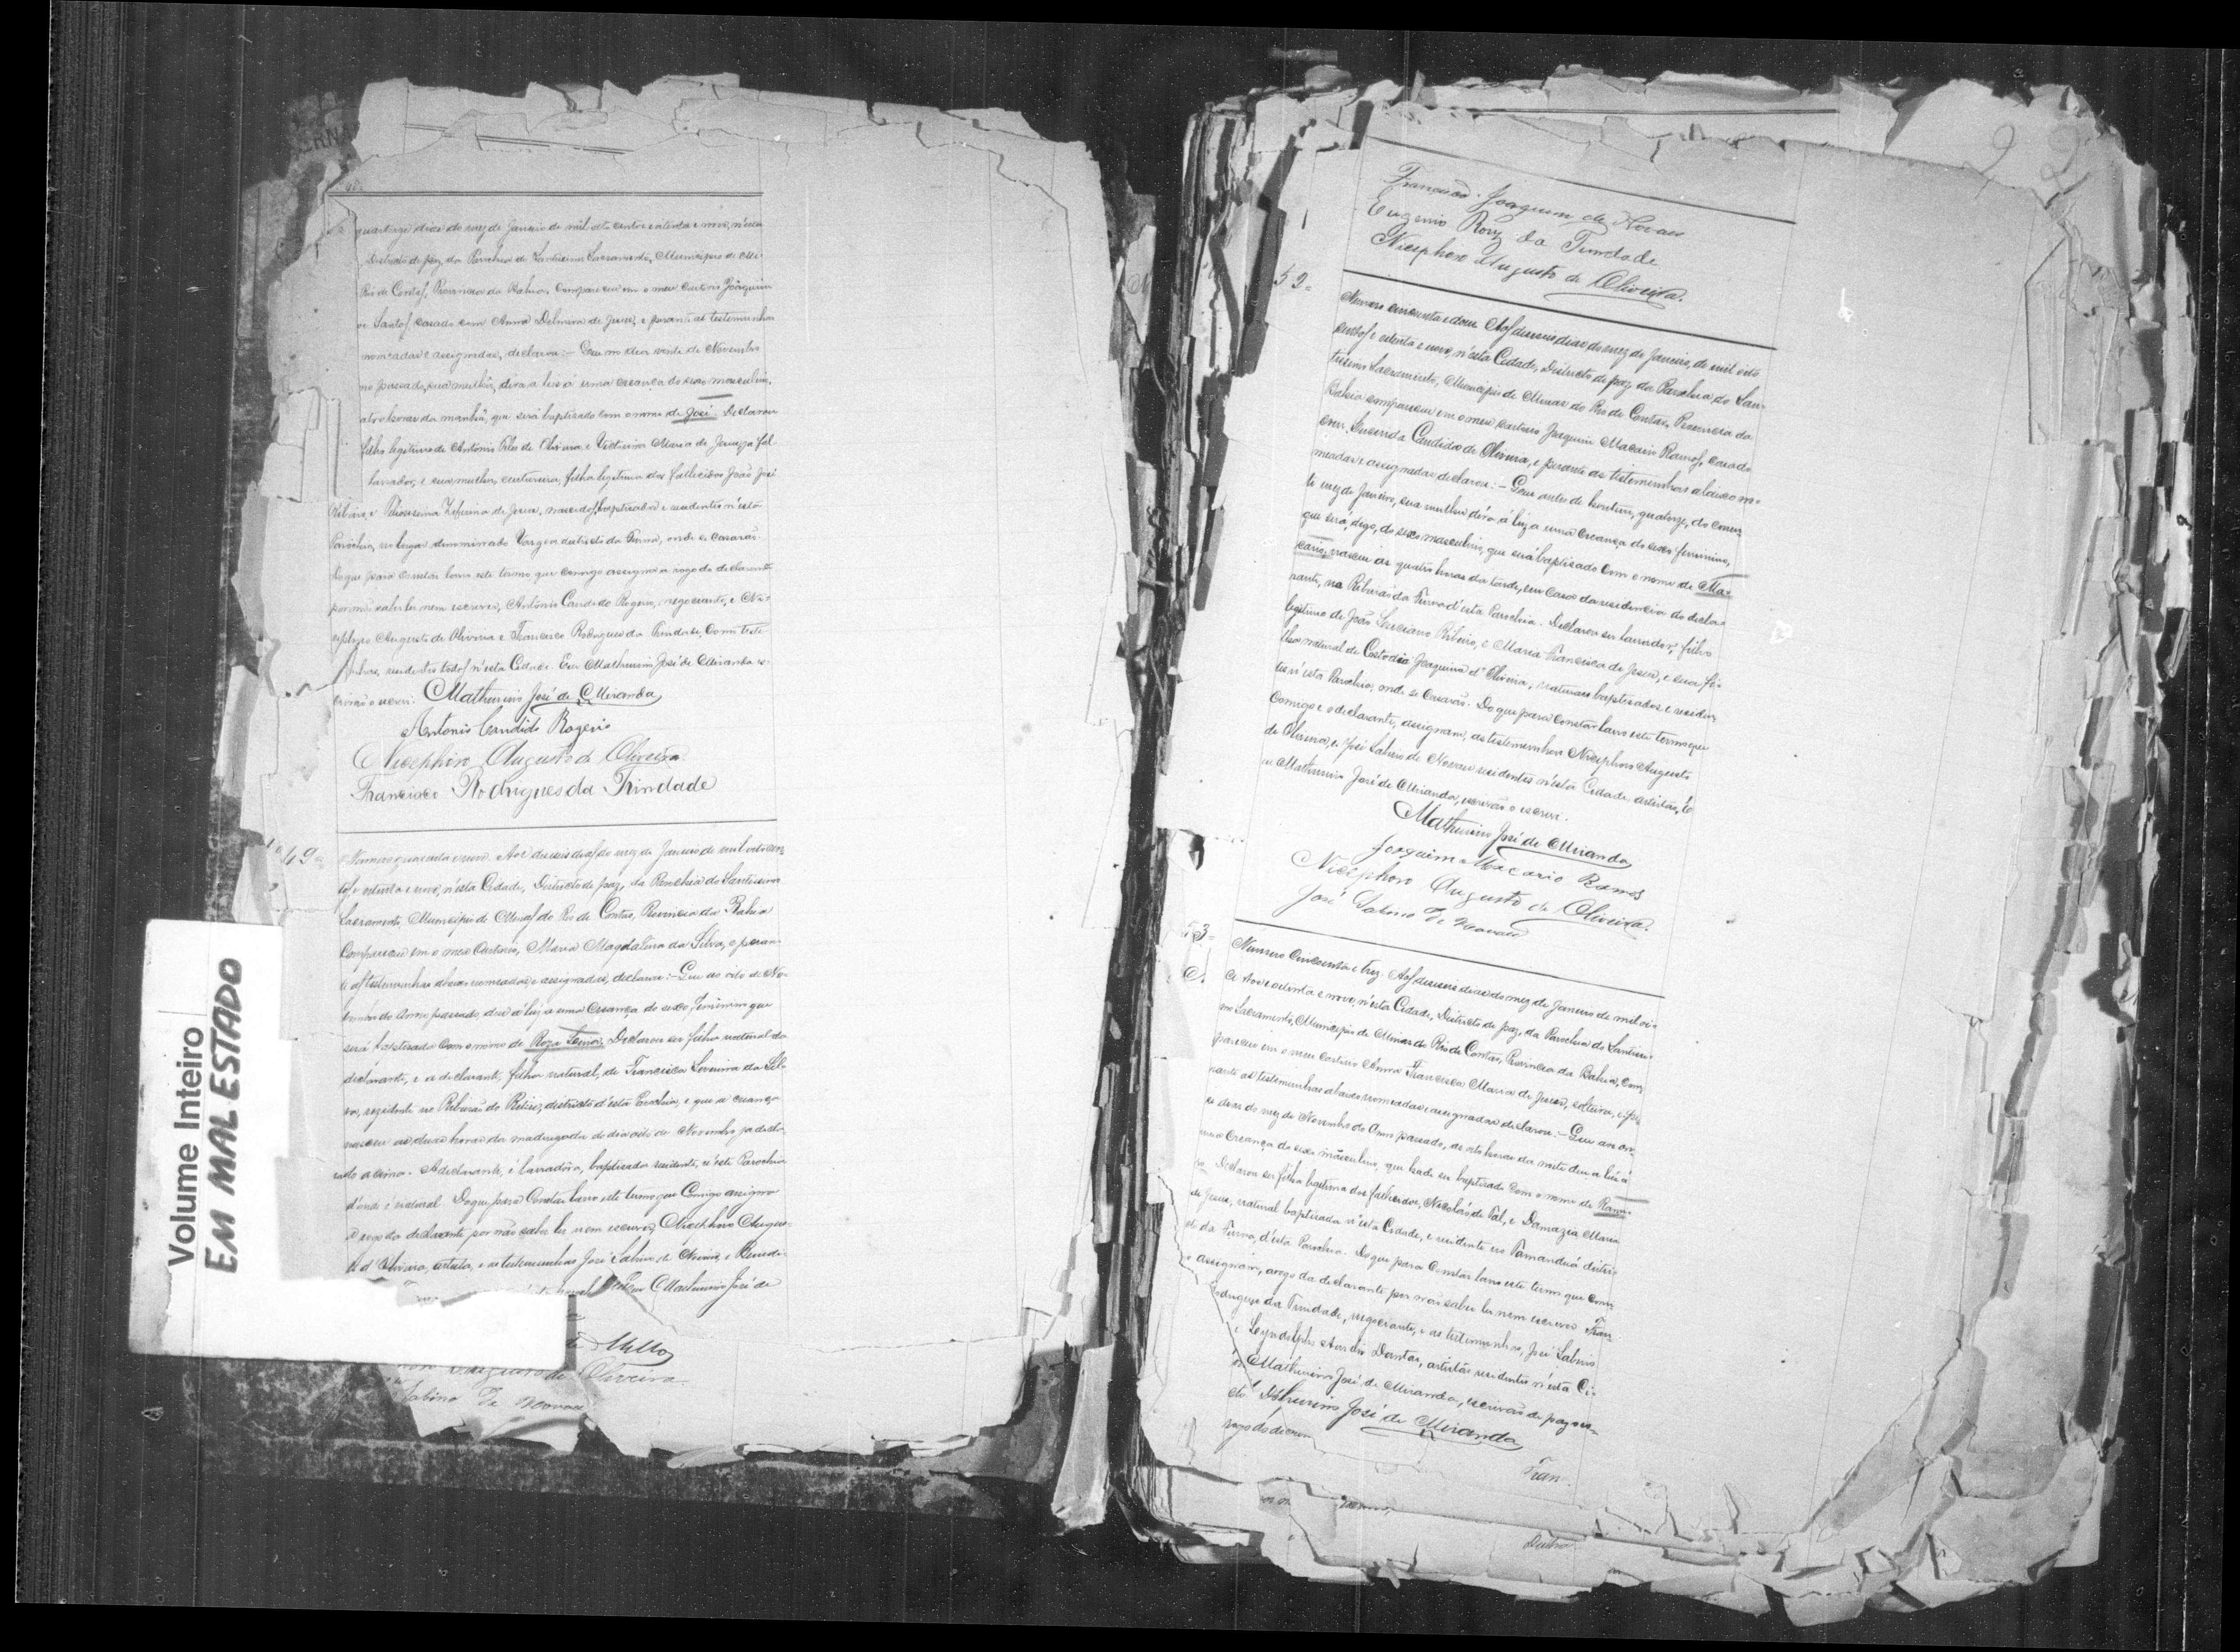 quatorze dias do mez de Janeiro de mil oito centos e oitenta e nove, n'esta
Districto de paz, da Parochia do Santissimo Sacramento, Municipio de Mi
Rio de Contas, Provincia da Bahia, compareceu em o meu Cartorio Joaquim
Santos casado com Anna Delmira de Jesus, e perante as testemunhas
nomeadas e assignadas, declarou: — Que no dia vinte de Novembro
no passado, sua mulher, dera a luz á uma creança do sexo masculino,
horas da manhã, que será baptisado com o nome de José. Declarou
filho legitimo de Antonio de Oliveira e Victorina Maria de Jesus, já fal
lavrador, e sua mulher, costureira, filha legitima dos fallecidos João José
Ribeiro, e Zeferina de Jesus, nascidos, baptisados e residentes n'esta
Parochia, no lugar denominado Vargem districto da Furna, onde se casarão.
Do que para constar lavro este termo, que comigo assigna a rogo do declarante
por não saber ler nem escrever, Antonio Candido Rogerio, negociante, e Ni-
cephoro Augusto de Oliveira e Francisco Rodrigues da Trindade, como teste
munhas, residentes todos n'esta Cidade. Eu Mathurino José de Miranda es-
crivão o escrevi. Mathurino José de Miranda
Antonio Candido Rogerio
Nicephoro Augusto de Oliveira.
Francisco Rodrigues da Trindade
49=
Numero quarenta e nove. Aos deseseis dias do mez de Janeiro de mil oito cen
tos e oitenta e nove, n'esta Cidade, Districto de paz, da Parochia do Santissimo
Sacramento, Municipio de Minas do Rio de Contas, Provincia da Bahia
Compareceu em o meu Cartorio, Maria Magdalena da Silva, e peran-
te as testemunhas abaixo nomeadas e assignadas, declarou: — Que ao oito de No-
vembro do Anno passado, deu á luz a uma Creança do sexo Feminino que
será baptisada com o nome de Roza Lema. Declarou ser filha natural da
declarante, e a declarante, filha natural, de Francisca Severina da Sil-
va, rezidente no Ribeirão do Retiro, districto d'esta Parochia, e que a creança
nasceu as duas horas da madrugada do dia oito de Novembro ja decla-
rado acima. A declarante, é lavradora, baptisada residente, n'esta Parochia
d'onde é natural. Do que para Constar lavro este termo que Comigo assigna
a rogo da declarante por não saber ler nem escrever, Nicephoro Augus-
to d'Oliveira, artista, e as testemunhas José Sabino de Novaes, e Benedi-
Eu Mathurino José de
de Mello
Augusto de Oliveira.
Sabino de Novaes
92
Francisco Joaquim de Novaes
Eugenio Roiz da Trindade
Nicephoro Augusto de Oliveira.
52=
Numero cincoenta e dous. Aos deseseis dias do mez de Janeiro, de mil oito
centos e oitenta e nove, n'esta Cidade, Districto de paz da Parochia do San-
tissimo Sacramento, Municipio de Minas do Rio de Contas, Provincia da
Bahia compareceu em o meu cartorio Joaquim Macario Ramos, casado
com Candida de Oliveira, e perante as testemunhas abaixo no-
meadas e assignadas declarou: — Que antes de hontem, quatorze, do corren
te mez de Janeiro, sua mulher déra á luz a uma Creança do sexo feminino,
que será, digo, do sexo masculino, que será baptisado com o nome de Ma-
cario; nasceu as quatro horas da tarde, em Casa da residencia do decla-
rante, no Ribeirão da Furna d'esta Parochia. Declarou ser lavrador, filho
legitimo de João Luciano Ribeiro, e Maria Francisca de Jesus, e sua fi-
lha natural de Custodia Joaquina d'Oliveira, naturaes baptisados e residen
tes n'esta Parochia, onde se casarão. Do que para Constar lavro este termo que
Comigo e o declarante, assignam, as testemunhas Nicephoro Augusto
de Oliveira, e José Sabino de Novaes residentes n'esta Cidade, artistas, E
eu Mathurino José de Miranda, escrivão o escrevi.
Mathurino José de Miranda
Joaquim Macario Ramos
Nicephoro Augusto de Oliveira.
José Sabino de Novaes
53=
Numero Cincoenta e trez. Aos deseseis dias do mez de Janeiro de mil oi-
to centos e oitenta e nove, n'esta Cidade, Districto de paz, da Parochia do Santissi-
mo Sacramento, Municipio de Minas do Rio de Contas, Provincia da Bahia, Com-
pareceu em o meu cartorio Anna Francisca Maria de Jesus, solteira, e pe-
rante as testemunhas abaixo nomeadas e assignadas declarou: — Que aos on-
ze dias do mez de Novembro do Anno passado, as oito horas da noite deu a luz á
uma Creança do sexo masculino, que hade ser baptisado Com o nome de Rami-
ro. Declarou ser filha legitima dos fallecidos, Nicoláo de Tal, e Damazia Maria
de Jesus, natural baptisada n'esta Cidade, e residente no Tamanduá distric-
to da Furna, d'esta Parochia. Do que para Constar lavro este termo que Com
assignam, a rogo da declarante por não saber ler nem escrever Fran
Rodrigues da Trindade, negociante, e as testemunhas, José Sabino
e Leyndolpho Aurelio Dantas, artistas residentes n'esta Ci-
Mathurino José de Miranda, escrivão de paz es-
Mathurino José de Miranda
rogo da
Fran
Volume Inteiro
EM MAL ESTADO